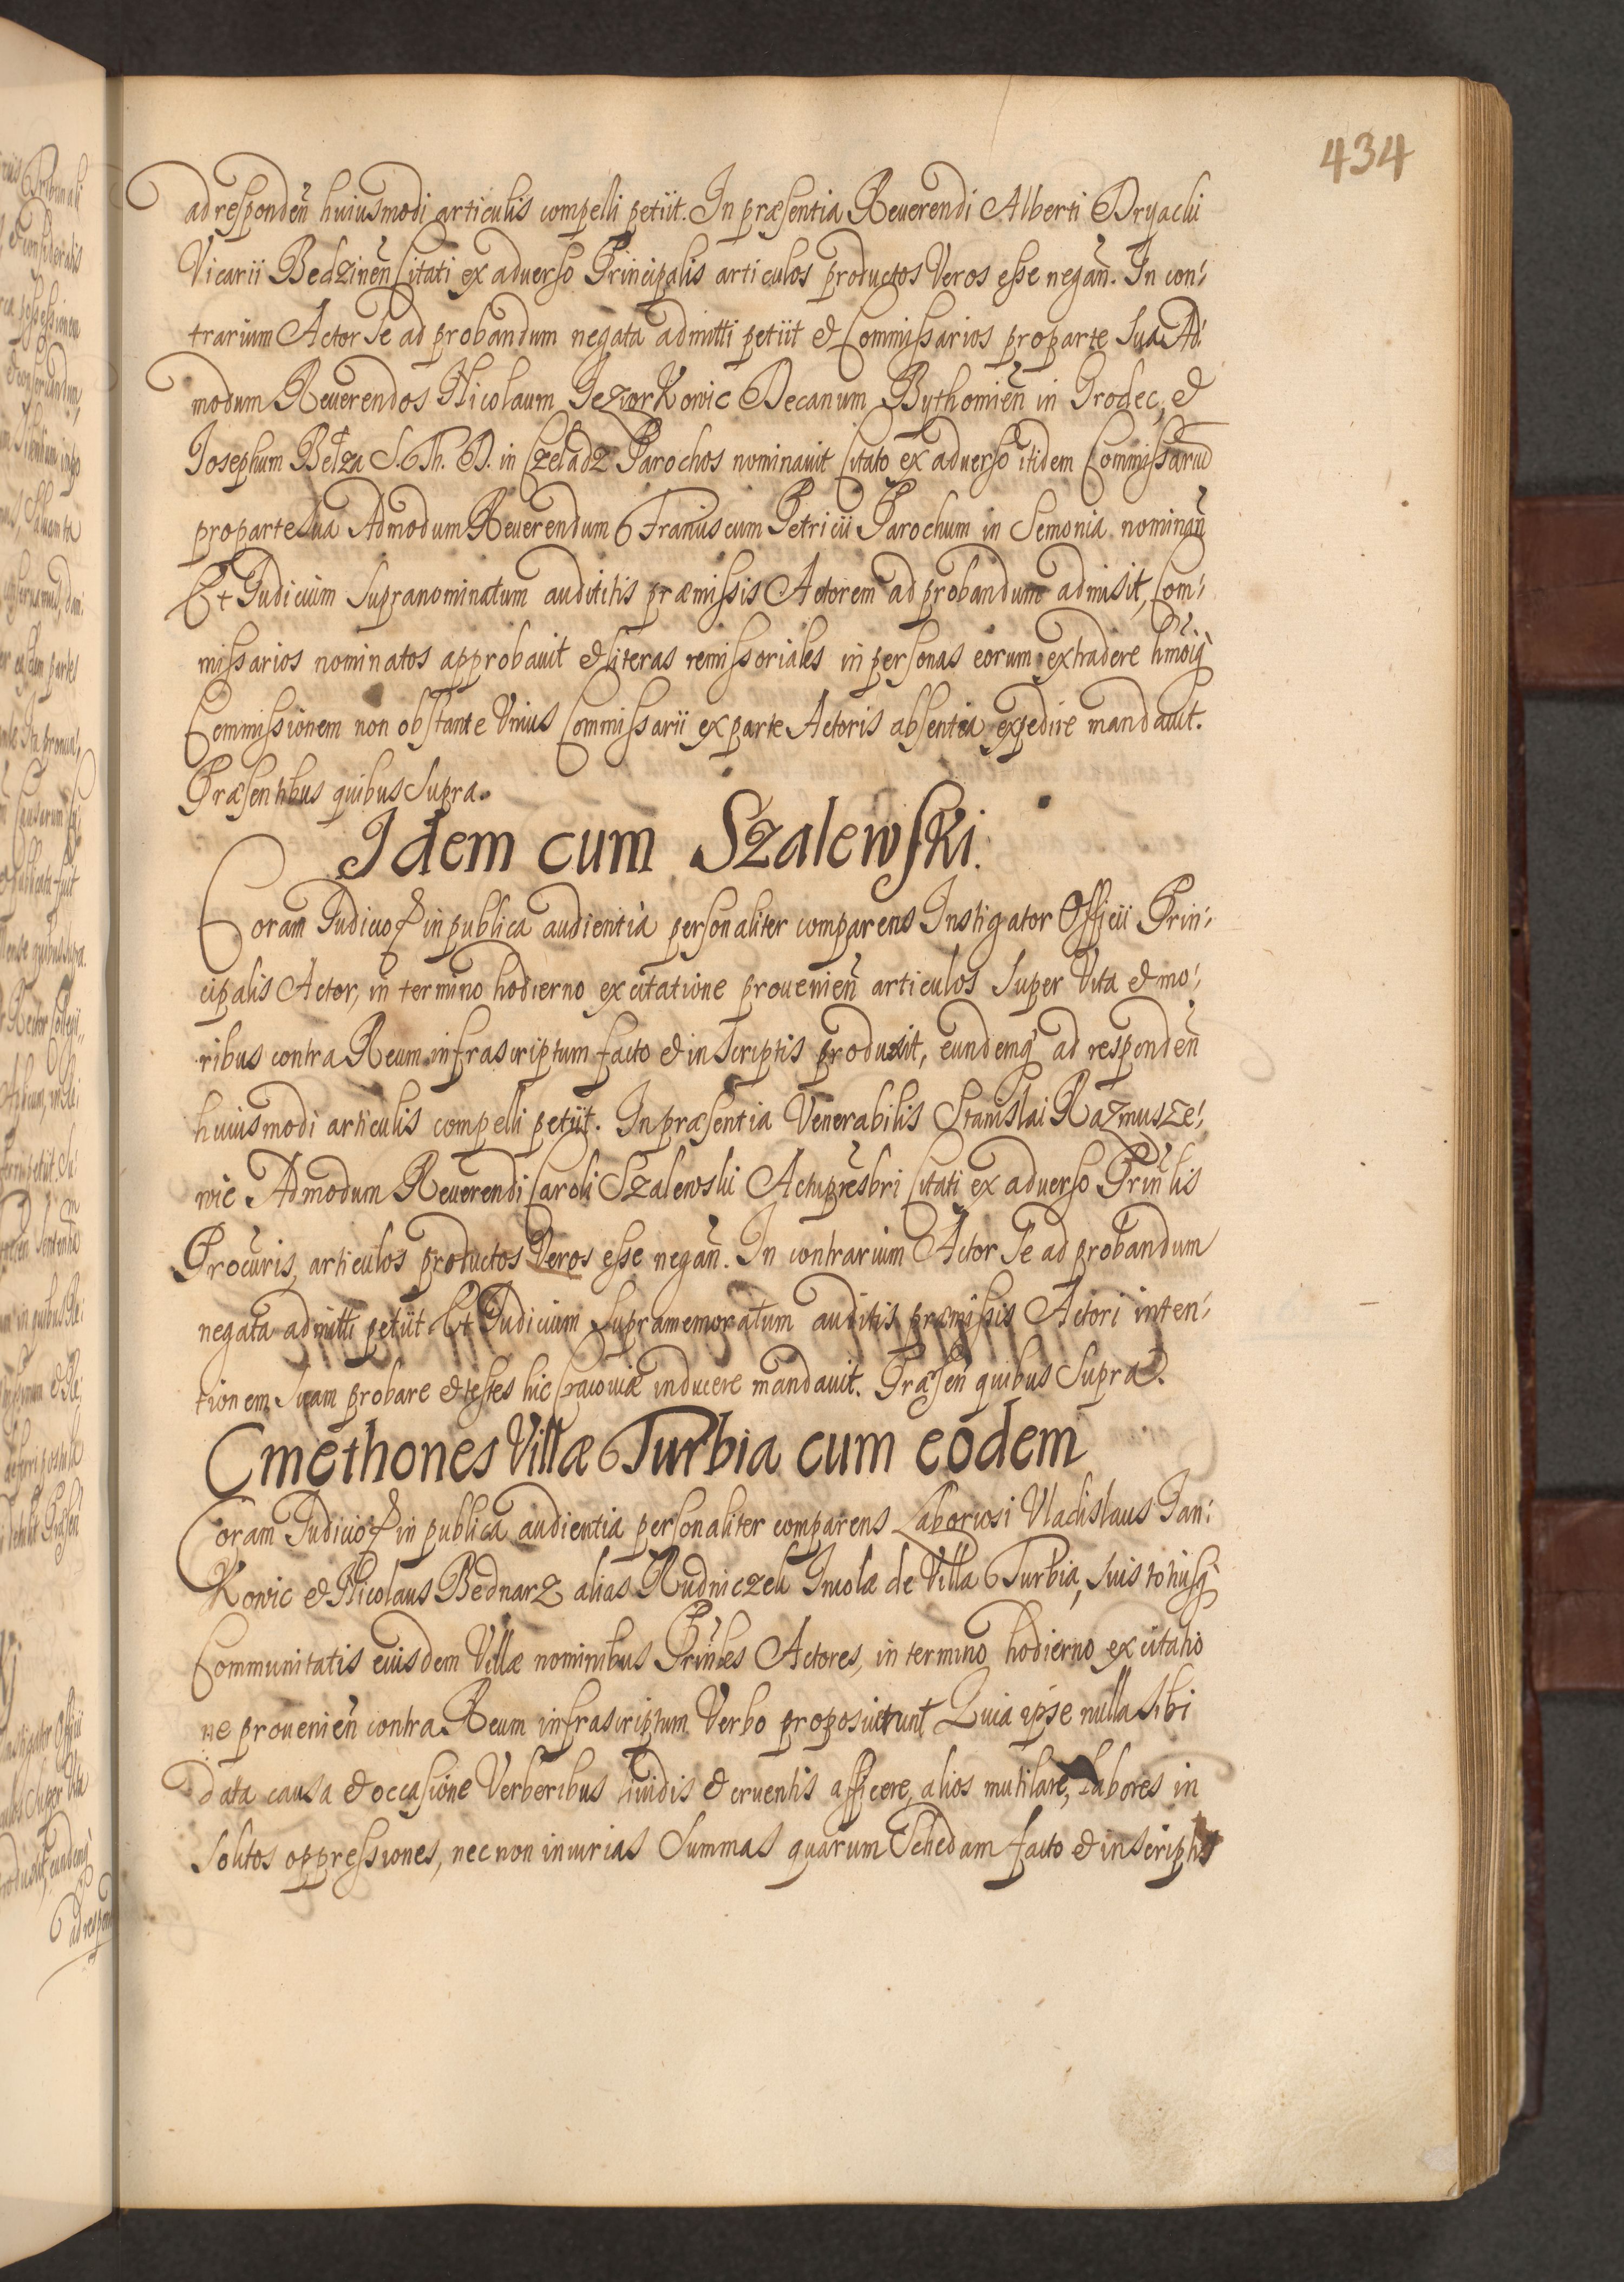 434
ad responden̄ huiusmodi articulis compelli petiit. In præsentia Reuerendi Alberti Dryacki
Vicarii Bedzinen̄ Citati ex aduerso Principalis articulos productos Veros esse negan̄. In con-
trarium Actor Se ad probandum negata admitti petiit & Commissarios pro parte Sua Ad-
modum Reuerendos Nicolaum Jeziorkowic Decanum Bythomien̄ in Grodec, &
Josephum Bełza S. Th. D. in Czeladz Parochos nominauit Citato ex aduerso itidem Commissariū
pro parte Sua Admodum Reuerendum Franciscum Petricii Parochum in Semonia nominan̄
Et Judicium Supranominatum auditihis præmissis Actorem ad probandum admisit, Com-
missarios nominatos approbauit & literas remissoriales in personas eorum extradere hmōiq
Commissionem non obstante Vnius Commissarii ex parte Actoris absentia expedire mandauit.
Præsentibus quibus Supra.
Idem cum Szalewski.
Coram Judicio & in publica audientia personaliter comparens Instigator Officii Prin-
cipalis Actor, in termino hodierno ex citatione prouenien̄ articulos Super Vita & mo-
ribus contra Reum infrascriptum facto & in Scriptis produxit, eundemq ad responden̄
huiusmodi articulis compelli petiit. In præsentia Venerabilis Stanislai Razmusze-
wic Admodum Reuerendi Caroli Szalewski Archipresb̄ri Citati ex aduerso Prin̄lis
Procūris, articulos productos Veros esse negan̄. In contrarium Actor Se ad probandum
negata admitti petiit Et Judicium Supramemoratum auditis præmissis Actori inten-
tionem Suam probare & testes hic Cracouiæ inducere mandauit. Præsen̄ quibus Supra.
Cmethones Villæ Turbia cum eodem
Coram Judicio & in publica audientia personaliter comparens Laboriosi Vladislaus Jan-
Kowic & Nicolaus Bednarz alias Rudniczek Incolæ de Villa Turbia, Suis totiusq
Communitatis eiusdem Villæ nominibus Prin̄les Actores, in termino hodierno ex citatio
ne prouenien̄ contra Reum infrascriptum Verbo proposuerunt Quia ipse nulla Sibi
data causa & occasione Verberibus liuidis & cruentis afficere, alios mutilare, labores in
Solitos oppressiones, nec non iniurias Summas quarum Schedam facto & in Scriptis